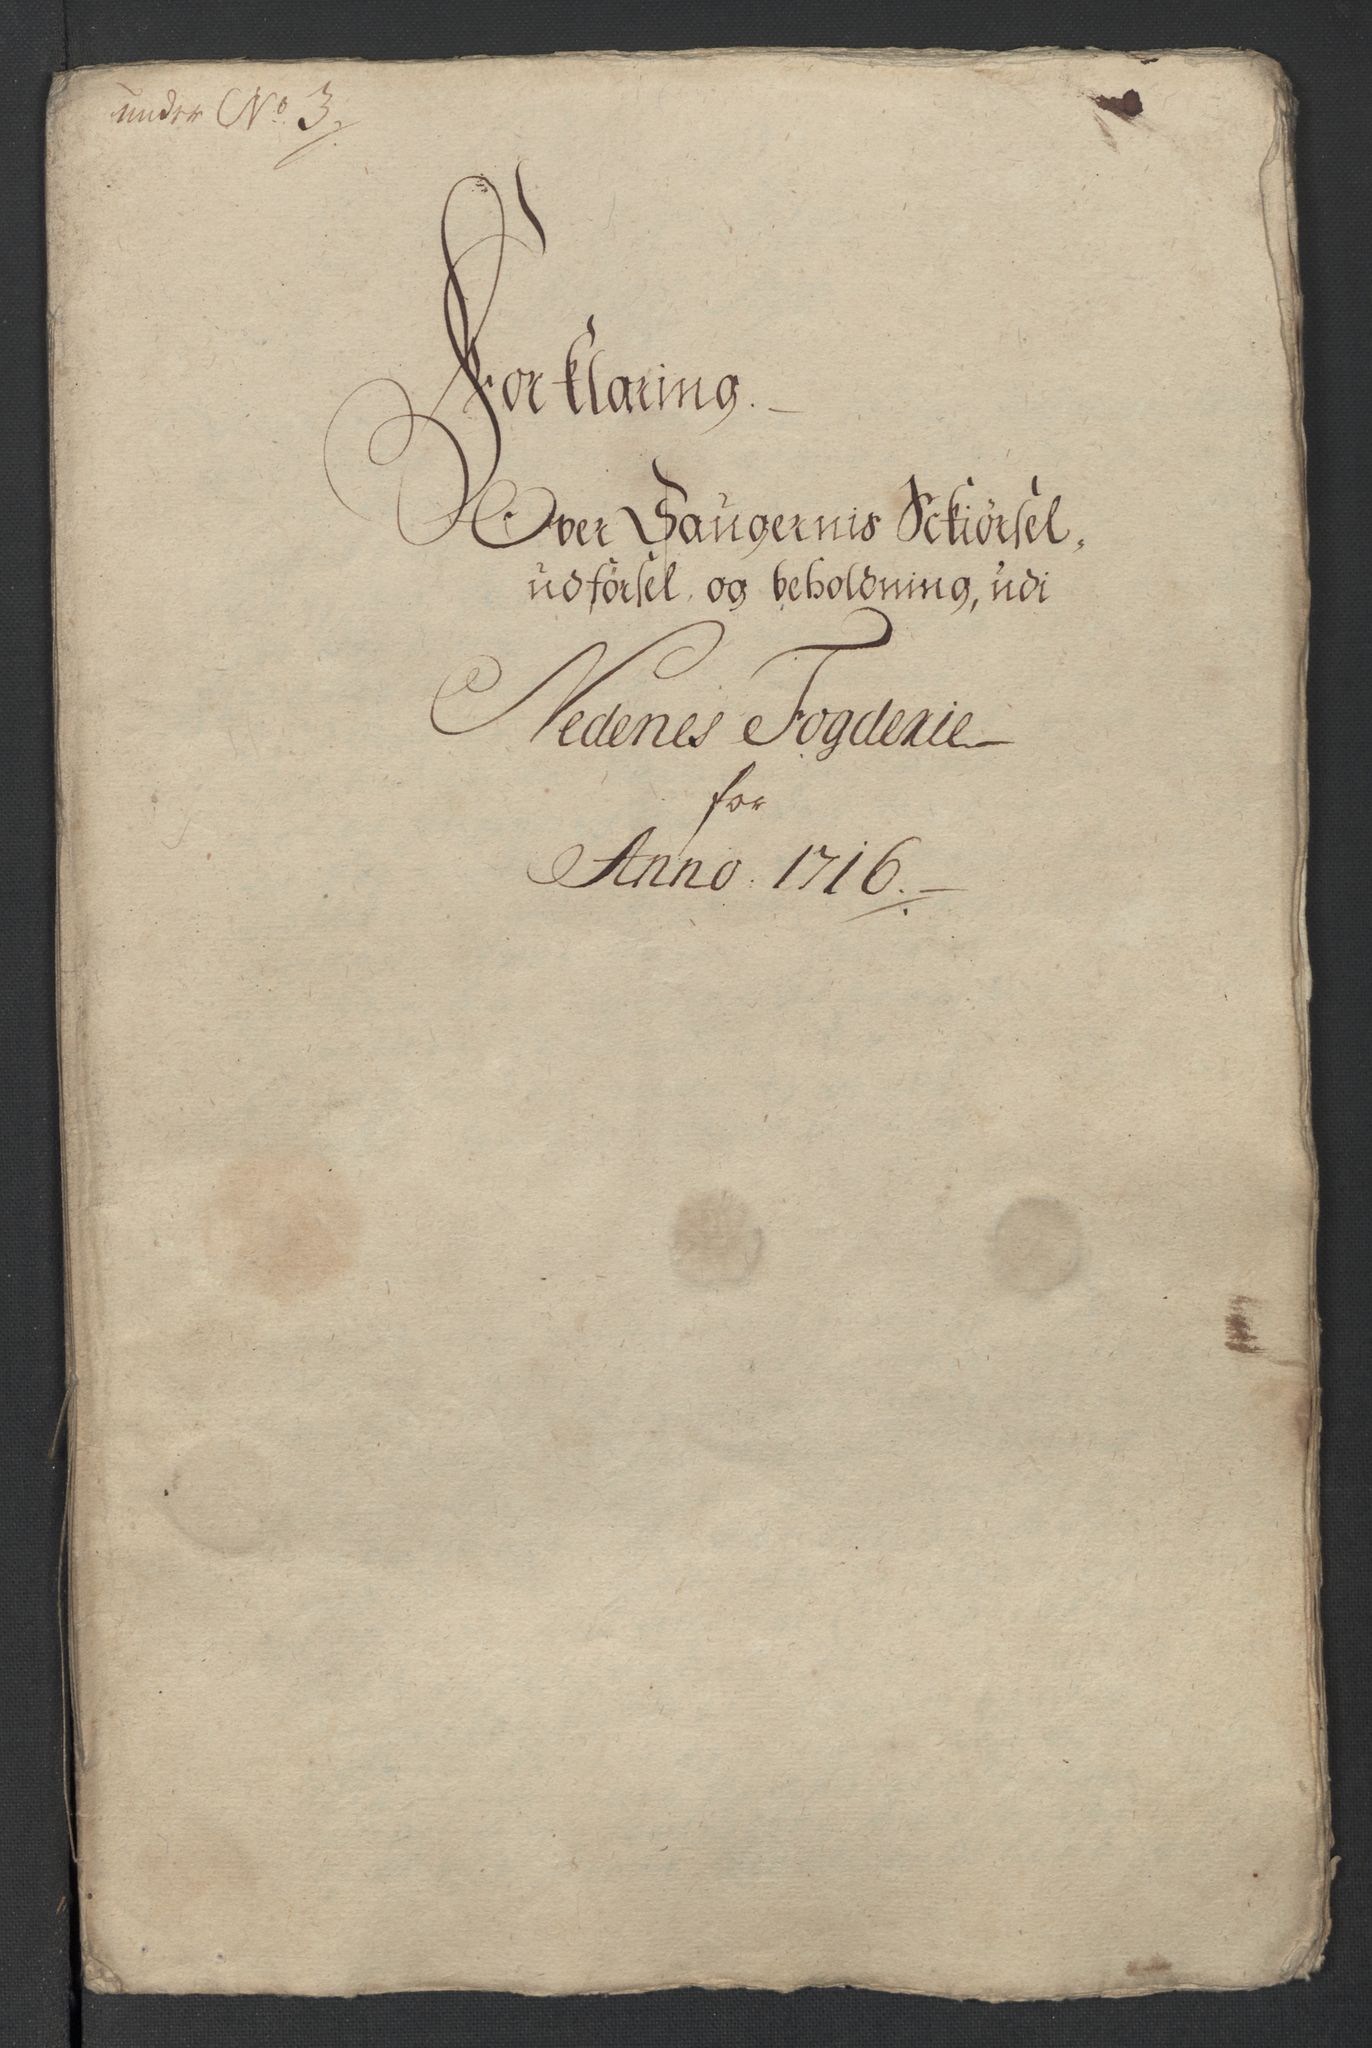 under No 3.
Forklaring.
Over Saugernis Sckiørsel,
udførsel og beholdning, udi
Nedenes Fogderie
for
Anno 1716.